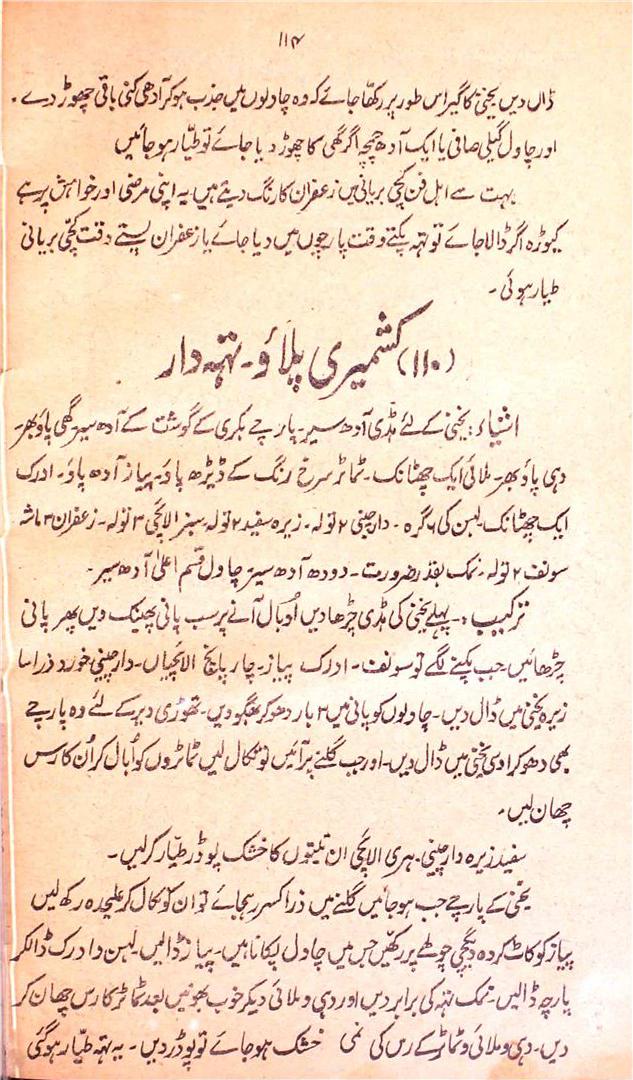 ۱۱۴
ڈال دیں یخنی کا گیر اس طور پر رکھا جائے کہ وہ چاولوں میں جذب ہو کر آدھی کنی باقی چھوڑ دے ۔
اور چاول گیلی صافی یا ایک آدھ چمچہ اگر گھی کا چھوڑ دیا جائے تو طیّار ہو جائیں
بہت سے اہل فن کچی بریانی میں زعفران کا رنگ دیتے ہیں یہ اپنی مرضی اور خواہش پر ہے
کیوڑہ اگر ڈالا جائے تو تہہ پکتے وقت پارچوں میں دیا جائے یا زعفران پستے وقت کچّی بریانی
طیار ہوئی ۔
(۱۱۰) کشمیری پلاؤ ۔ تہہ دار
اشیاء : یخنی کے لئے ہڈی آدھ سیر ۔ پارچے بکری کے گوشت کے آدھ سیر گھی پاؤ بھر ۔
دہی پاؤ بھر ۔ ملائی ایک چھٹانک ۔ ٹماٹر سرخ رنگ کے ڈیڑھ پاؤ ۔ پیاز آدھ پاؤ ۔ ادرک
ایک چھٹانک لہسن کی ۶ گرہ ۔ دارچینی ۲ تولہ ۔ زیرہ سفید ۲ تولہ سبز الائچی ۳ تولہ ۔ زعفران ۳ ماشہ
سونف ۲ تولہ ۔ نمک بقدر ضرورت ۔ دودھ آدھ سیر چاول قسم اعلیٰ آدھ سیر ۔
ترکیب :۔ پہلے یخنی کی ہڈی چڑھا دیں اُوبال آنے پر سب پانی پھینک دیں پھر پانی
چڑھائیں جب پکنے لگے تو سونف ۔ ادرک پیاز ۔ چار پانچ الائچیاں ۔ دارچینی خورد ذرا سا
زیرہ یخنی میں ڈال دیں ۔ چاولوں کو پانی میں ۳ بار دھو کر بھگو دیں ۔ تھوڑی دیر کے لئے وہ پارچے
بھی دھو کر اوسی یخنی میں ڈال دیں ۔ اور جب گلنے پر آئیں تو نکال لیں ٹماٹروں کو اُبال کر اُن کا رس
چھان لیں ۔
سفید زیرہ دارچینی ۔ ہری الائچی ان تینوں کا خشک پوڈر طیّار کر لیں ۔
یخنی کے پارچے جب ہو جائیں گلنے میں ذرا کسر رہجائے تو ان کو نکال کر علیحدہ رکھ لیں
پیاز کو کاٹ کر وہ دیگچی چولھے پر رکھیں جس میں چاول پکانا ہیں ۔ پیاز ڈالیں ۔ لہسن و ادرک ڈالکر
پارچہ ڈالیں ۔ نمک تہہ کی برابر دیں اور دہی و ملائی دیکر خوب بھونیں بعد ٹماٹر کا رس چھان کر
دیں ۔ دہی و ملائی و ٹماٹر کے رس کی نمی خشک ہو جائے تو پوڈر دیں ۔ یہ تہہ طیّار ہو گئی